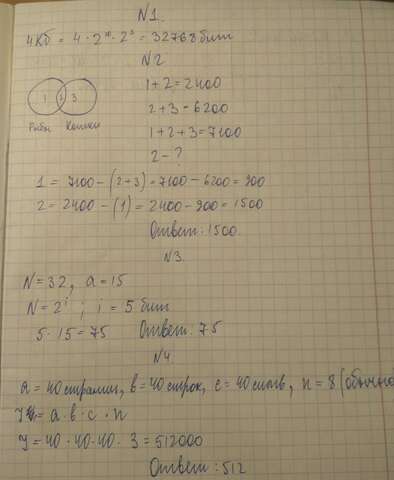 N1.
4Кб = 4 · 2¹⁰ · 2³ = 32768 бит
N2
1 + 2 = 2400
1 2 3
2 + 3 = 6200
Рыбы Кошки
1 + 2 + 3 = 7100
2 - ?
1 = 7100 - (2+3) = 7100 - 6200 = 900
2 = 2400 - (1) = 2400 - 900 = 1500
Ответ: 1500.
N3.
N = 32, a = 15
N = 2ⁱ ; i = 5 бит
5 · 15 = 75 Ответ: 75
N4
a = 40 страниц, в = 40 строк, с = 40 симв, n = 8 (обычно
= a · в · с · n
J = 40 · 40 · 40 · 3 = 512000
Ответ: 512